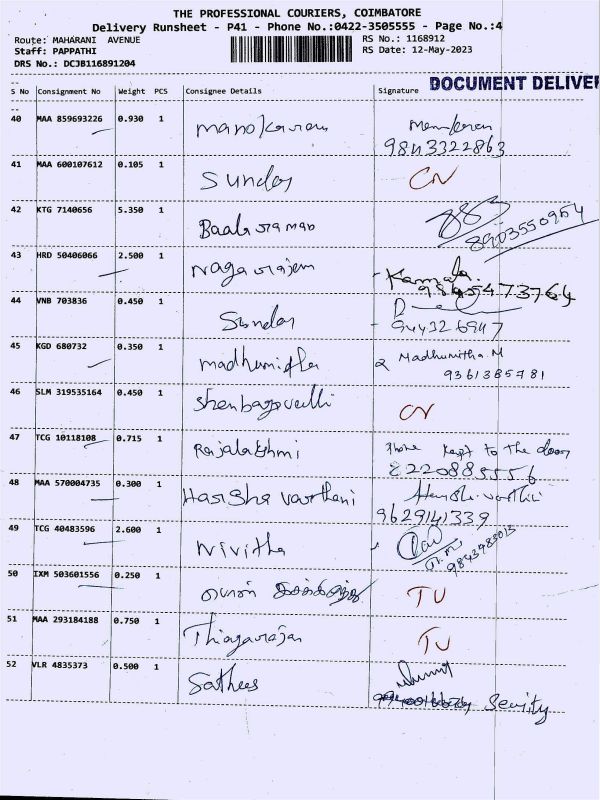 THE PROFESSIONAL COURIERS, COIMBATORE
Delivery Runsheet - P41 - Phone No.:0422-3505555 - Page No.:4
Route: MAHARANI AVENUE
RS No.: 1168912
Staff: PAPPATHI
RS Date: 12-May-2023
DRS No.: DCJB116891204
DOCUMENT DELIVER
S No Consignment No Weight PCS Consignee Details Signature
40 MAA 859693226 0.930 1 manokaran
9843322863
41 MAA 600107612 0.105 1 Sundar CN
42 KTG 7140656 5.350 1 Baalaraman
8903550954
43 HRD 50406066 2.500 1 Nagarajan Kamala.
9865473764
44 VNB 703836 0.450 1 Sundar
944326947
45 KGD 680732 0.350 1 madhumitha Madhumitha.M
9361385781
46 SLM 319535164 0.450 1 Shenbagavalli CN
47 TCG 10118108 0.715 1 Rajalakshmi Phone kept to the door
8220885556
48 MAA 570004735 0.300 1 Harisha varthani
9629141339
49 TCG 40483596 2.600 1 Nivitha
50 IXM 503601556 0.250 1 TU
51 MAA 293184188 0.750 1 Thiagarajan TU
52 VLR 4835373 0.500 1 Sathees
Serity